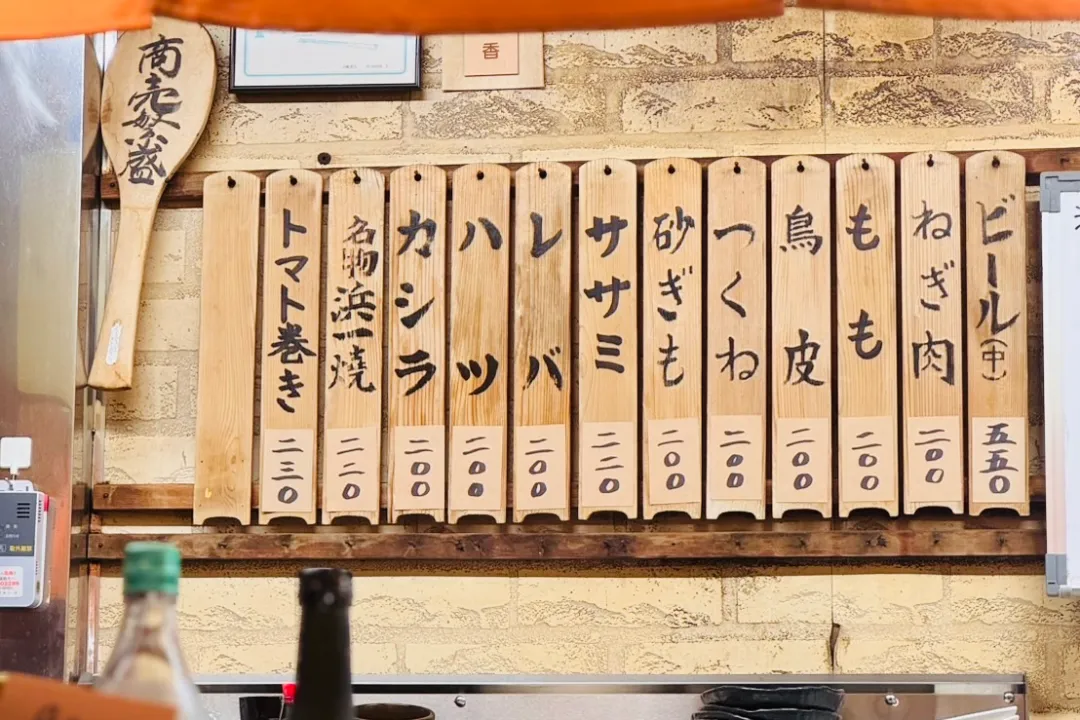 商売繁盛
香
ビール(中)
五五〇
ねぎ肉
二〇〇
もも
二〇〇
鳥皮
二〇〇
つくね
二〇〇
砂ぎも
二〇〇
ササミ
二二〇
レバ
二〇〇
ハツ
二〇〇
カシラ
二〇〇
名物浜一焼
二二〇
トマト巻き
二三〇